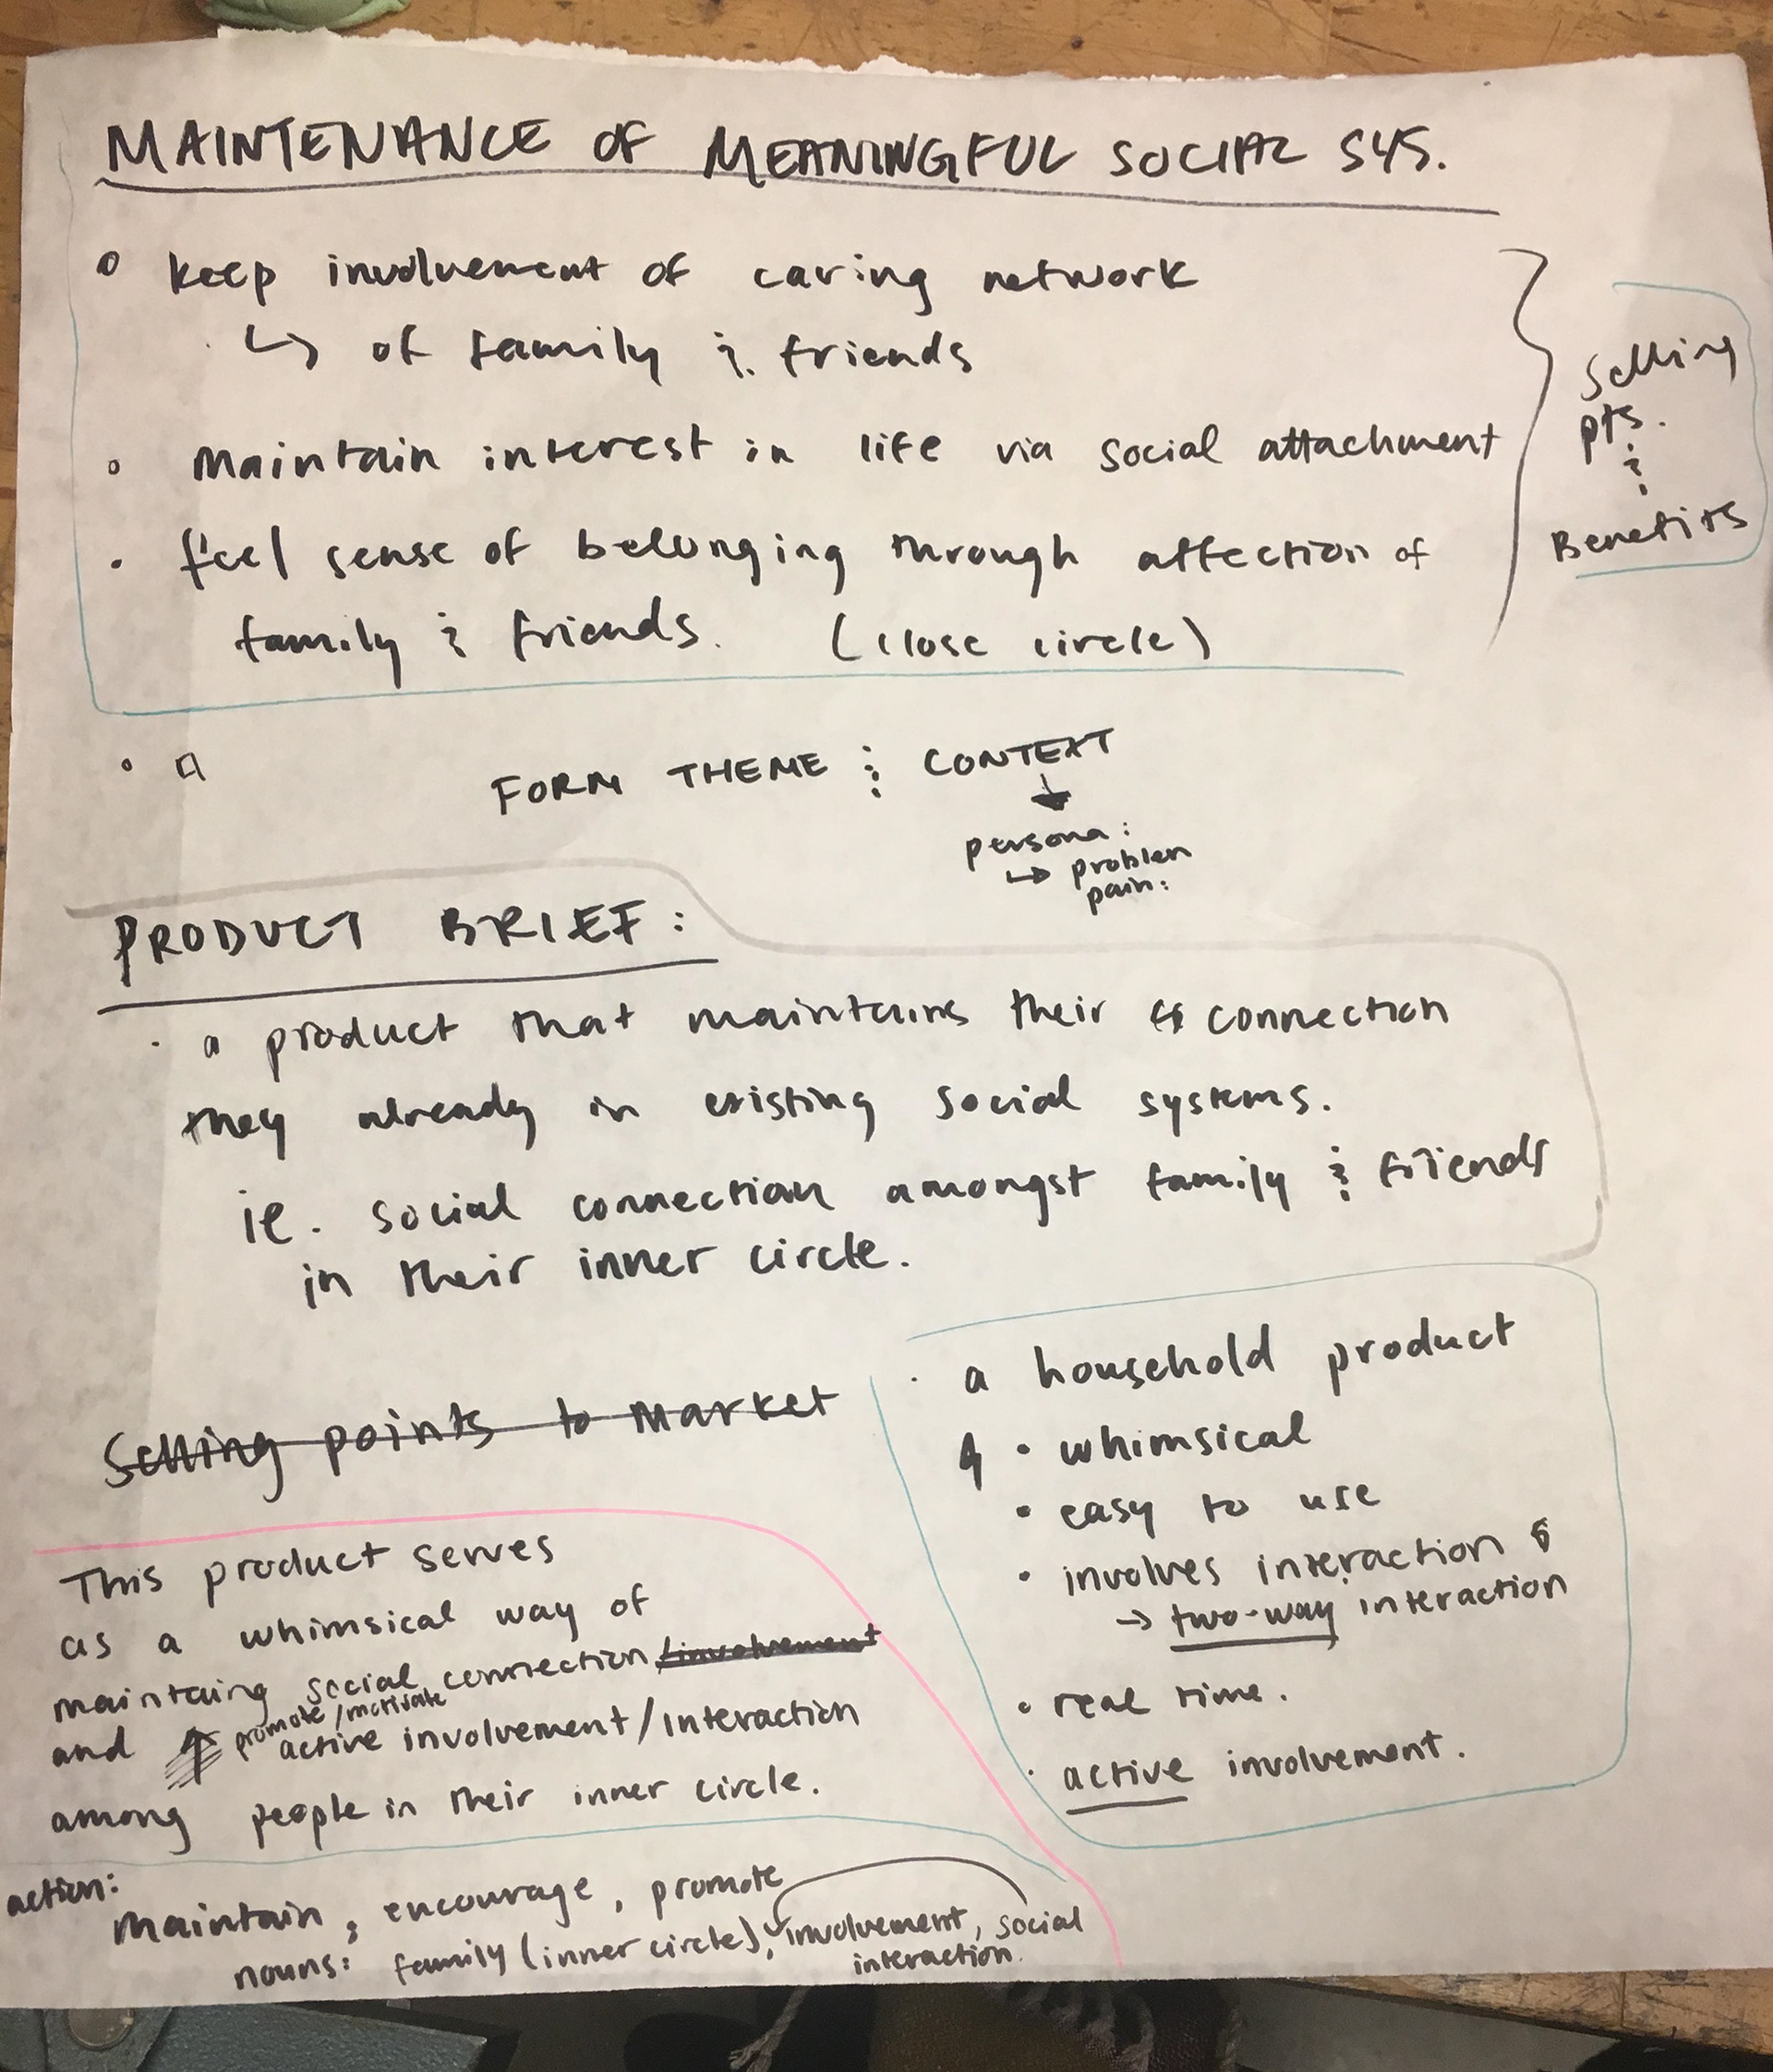 MAINTENANCE OF MEANINGFUL SOCIAL SYS.
keep involvement of caring network
↳ of family & friends
maintain interest in life via social attachment
feel sense of belonging through affection of
family & friends. (close circle)
Selling
pts.
&
Benefits
FORM THEME & CONTEXT
persona:
↳ problem
pain:
PRODUCT BRIEF:
a product that maintains their connection
they already in existing social systems.
ie. social connection amongst family & friends
in their inner circle.
Selling points to market
a household product
whimsical
easy to use
involves interaction
→ two-way interaction
real time.
active involvement.
This product serves
as a whimsical way of
maintaing social connection/involvement
and promote/motivate
active involvement/interaction
among people in their inner circle.
action:
maintain, encourage, promote
nouns: family (inner circle), involvement, social
interaction.